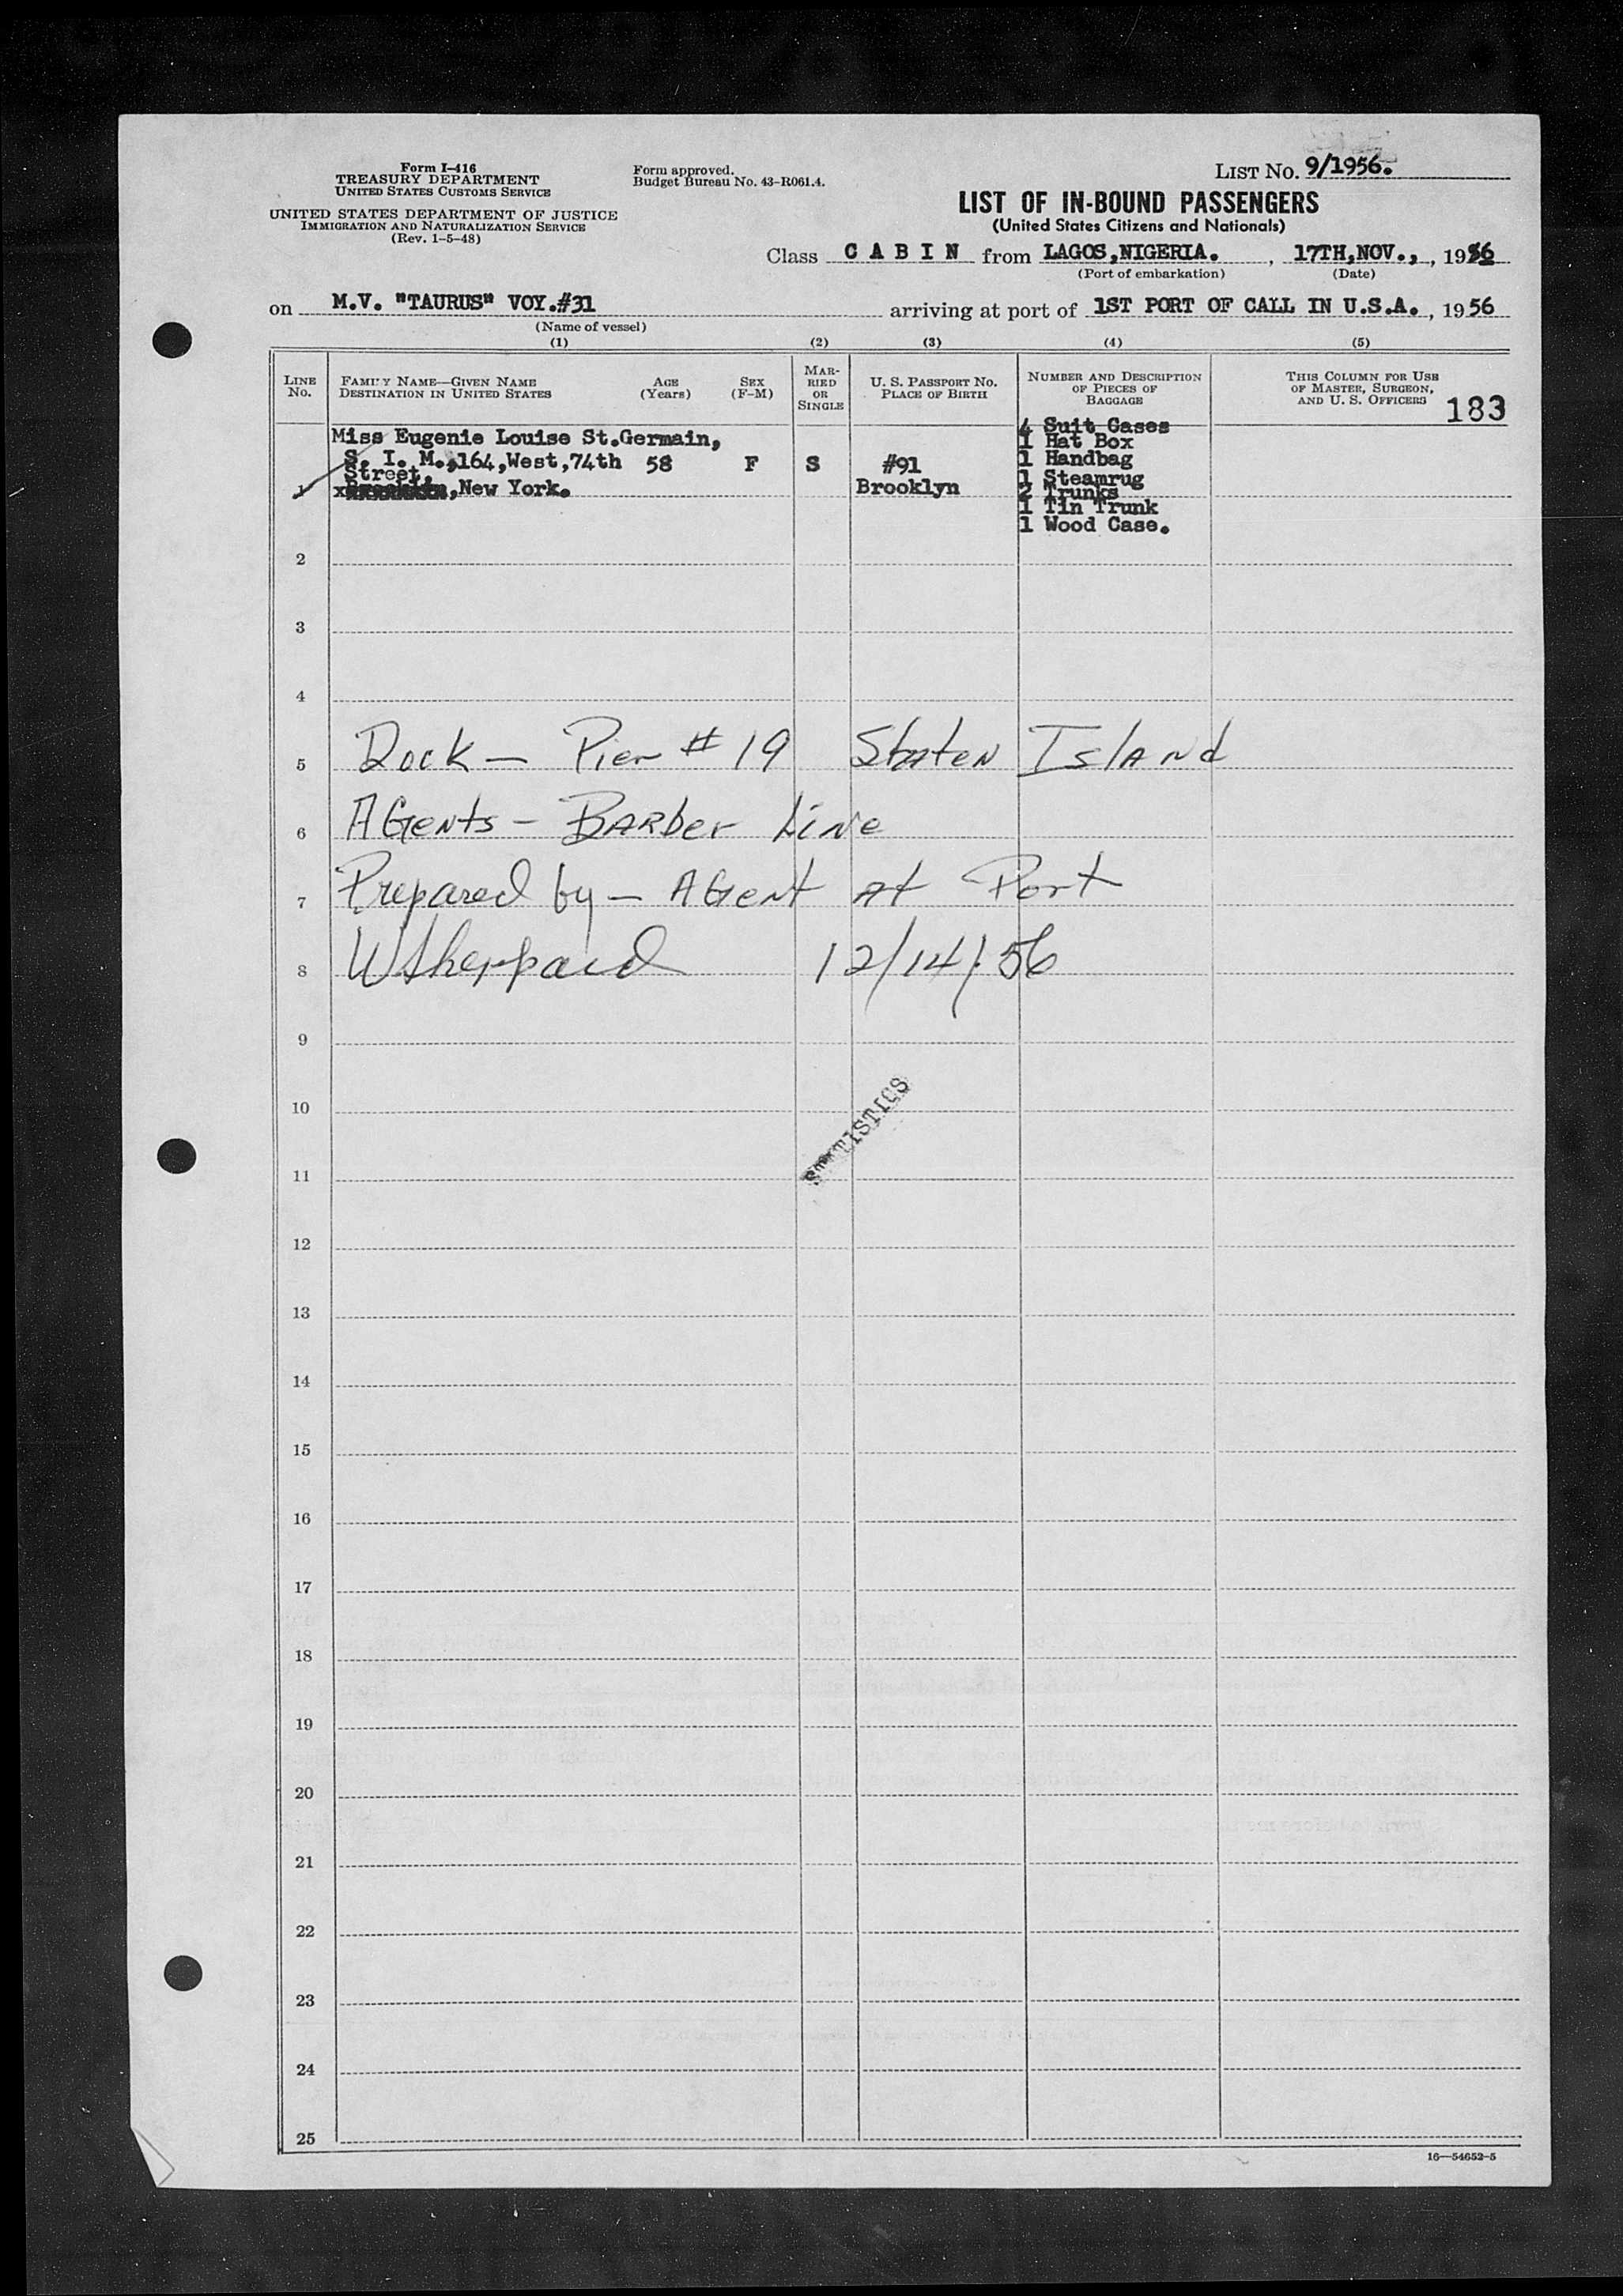 Form I-416
TREASURY DEPARTMENT
UNITED STATES CUSTOMS SERVICE
UNITED STATES DEPARTMENT OF JUSTICE
IMMIGRATION AND NATURALIZATION SERVICE
(Rev. 1-5-48)
Form approved.
Budget Bureau No. 43-R061.4.
LIST No. 9/1956.
LIST OF IN-BOUND PASSENGERS
(United States Citizens and Nationals)
Class C A B I N from LAGOS,NIGERIA. , 17TH,NOV., , 1956
(Port of embarkation) (Date)
on M.V. "TAURUS" VOY.#31 arriving at port of 1ST PORT OF CALL IN U.S.A. , 1956
(Name of vessel)
(1) (2) (3) (4) (5)
LINE No.
FAMILY NAME—GIVEN NAME
DESTINATION IN UNITED STATES
AGE (Years)
SEX (F-M)
MARRIED OR SINGLE
U. S. PASSPORT No.
PLACE OF BIRTH
NUMBER AND DESCRIPTION OF PIECES OF BAGGAGE
THIS COLUMN FOR USE OF MASTER, SURGEON, AND U. S. OFFICERS
183
1
Miss Eugenie Louise St.Germain,
S. I. M.,164,West,74th 58 F S #91
Street,
,New York. Brooklyn
4 Suit Cases
1 Hat Box
1 Handbag
1 Steamrug
2 Trunks
1 Tin Trunk
1 Wood Case.
2
3
4
5 Dock — Pier # 19 Staten Island
6 AGents - BARber Line
7 Prepared by — AGent At Port
8 WSheppard 12/14/56
9
10
STATISTICS
11
12
13
14
15
16
17
18
19
20
21
22
23
24
25
16—54652-5